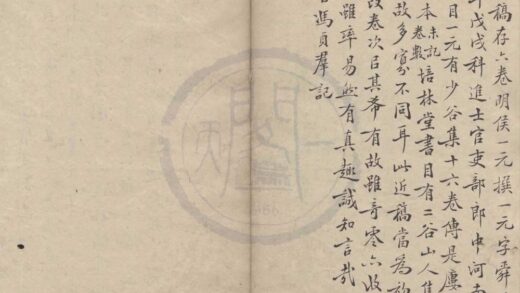 稿存六卷明侯一元撰一元字舜
戊戌科進士官吏部郎中河南
目一元有少谷集十六卷傳是廔
本未記卷數培林堂書目有二谷山人集
故多寡不同耳此近稿當為
故卷次臼其希有故雖奇零亦收
雖率易然有真趣誠知言哉
馮貞羣記